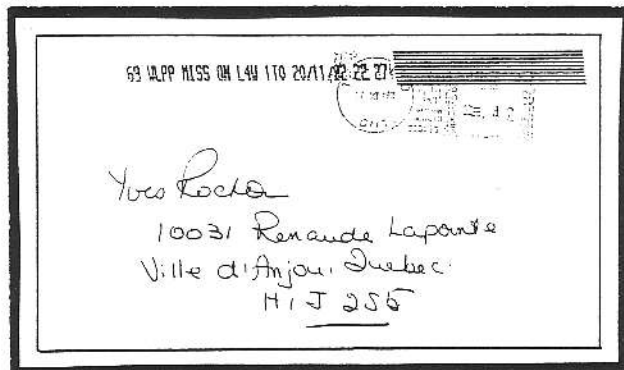 69 VLPP MISS ON L4W 1T0 20/11/92 22 27
ONT
42
Yves Rocher
10031 Renaude Lapointe
Ville d'Anjou, Quebec.
H1J 2S5